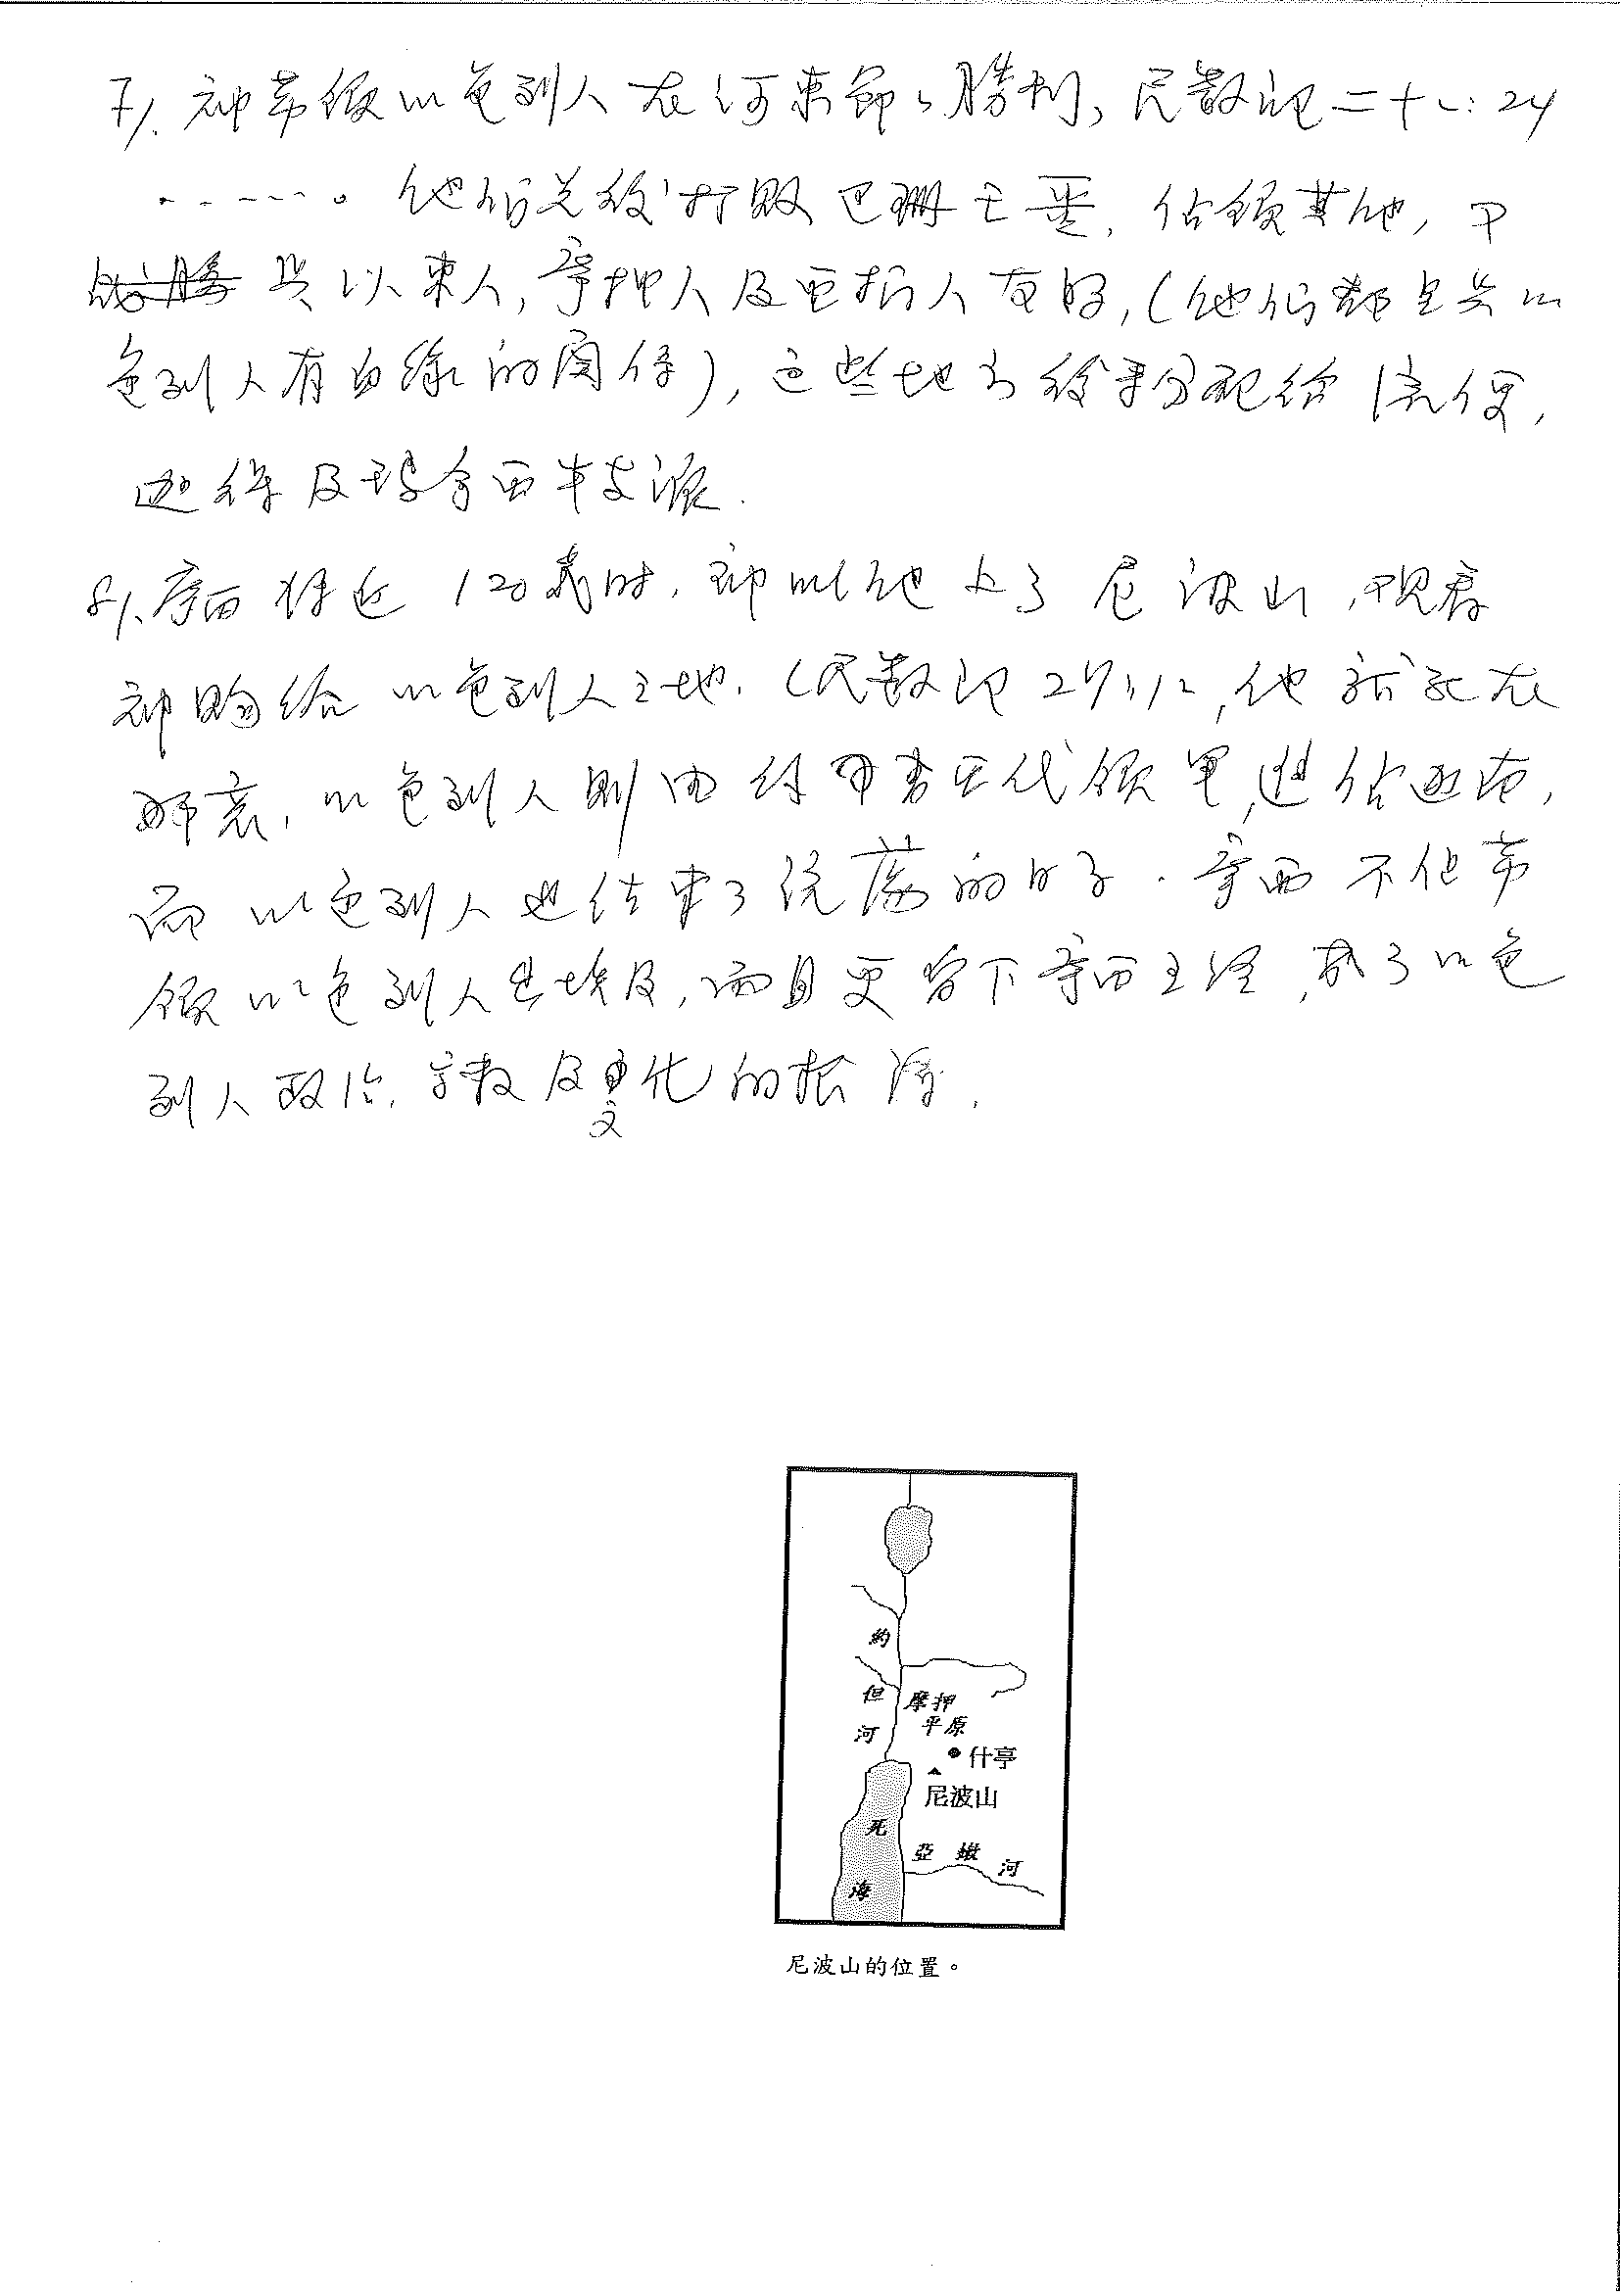 7). 神帶領以色列人在河東節節勝利，民數記二十一：24
......。他們先後打敗巴珊王噩，佔領其他，
與以東人，摩押人及亞捫人友好，(他們都是與以
色列人有血緣的關係)，這些地方後來分配給流便，
迦得及瑪拿西半支派.
8). 摩西將近120歲時，神叫他上了尼波山，觀看
神賜給以色列人之地.(民數記27:12，他就死在
那裏，以色列人則由約書亞代領軍，進佔迦南，
而以色列人也結束了流蕩的日子.摩西不但帶
領以色列人出埃及，而且更留下摩西五經，成了以色
列人政治，宗教及文化的根源.
約
但
河
摩押
平原
什亭
尼波山
死
海
亞嫩河
尼波山的位置。